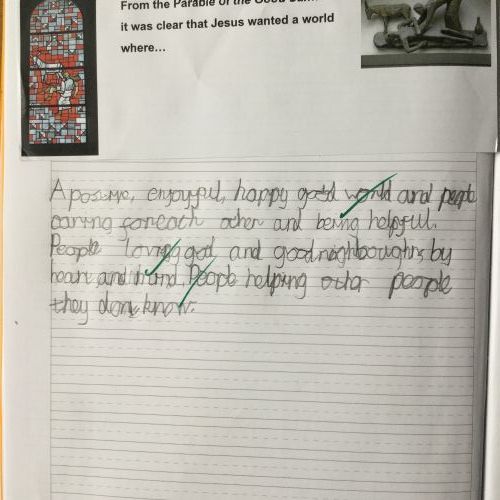 From the Parable of the Good
it was clear that Jesus wanted a world
where...
A positive, enjoyful, happy good world and people
caring foreach other and being helpful.
People loving god and good neighboughrs by
heart and mind. People helping other people
they dont know.